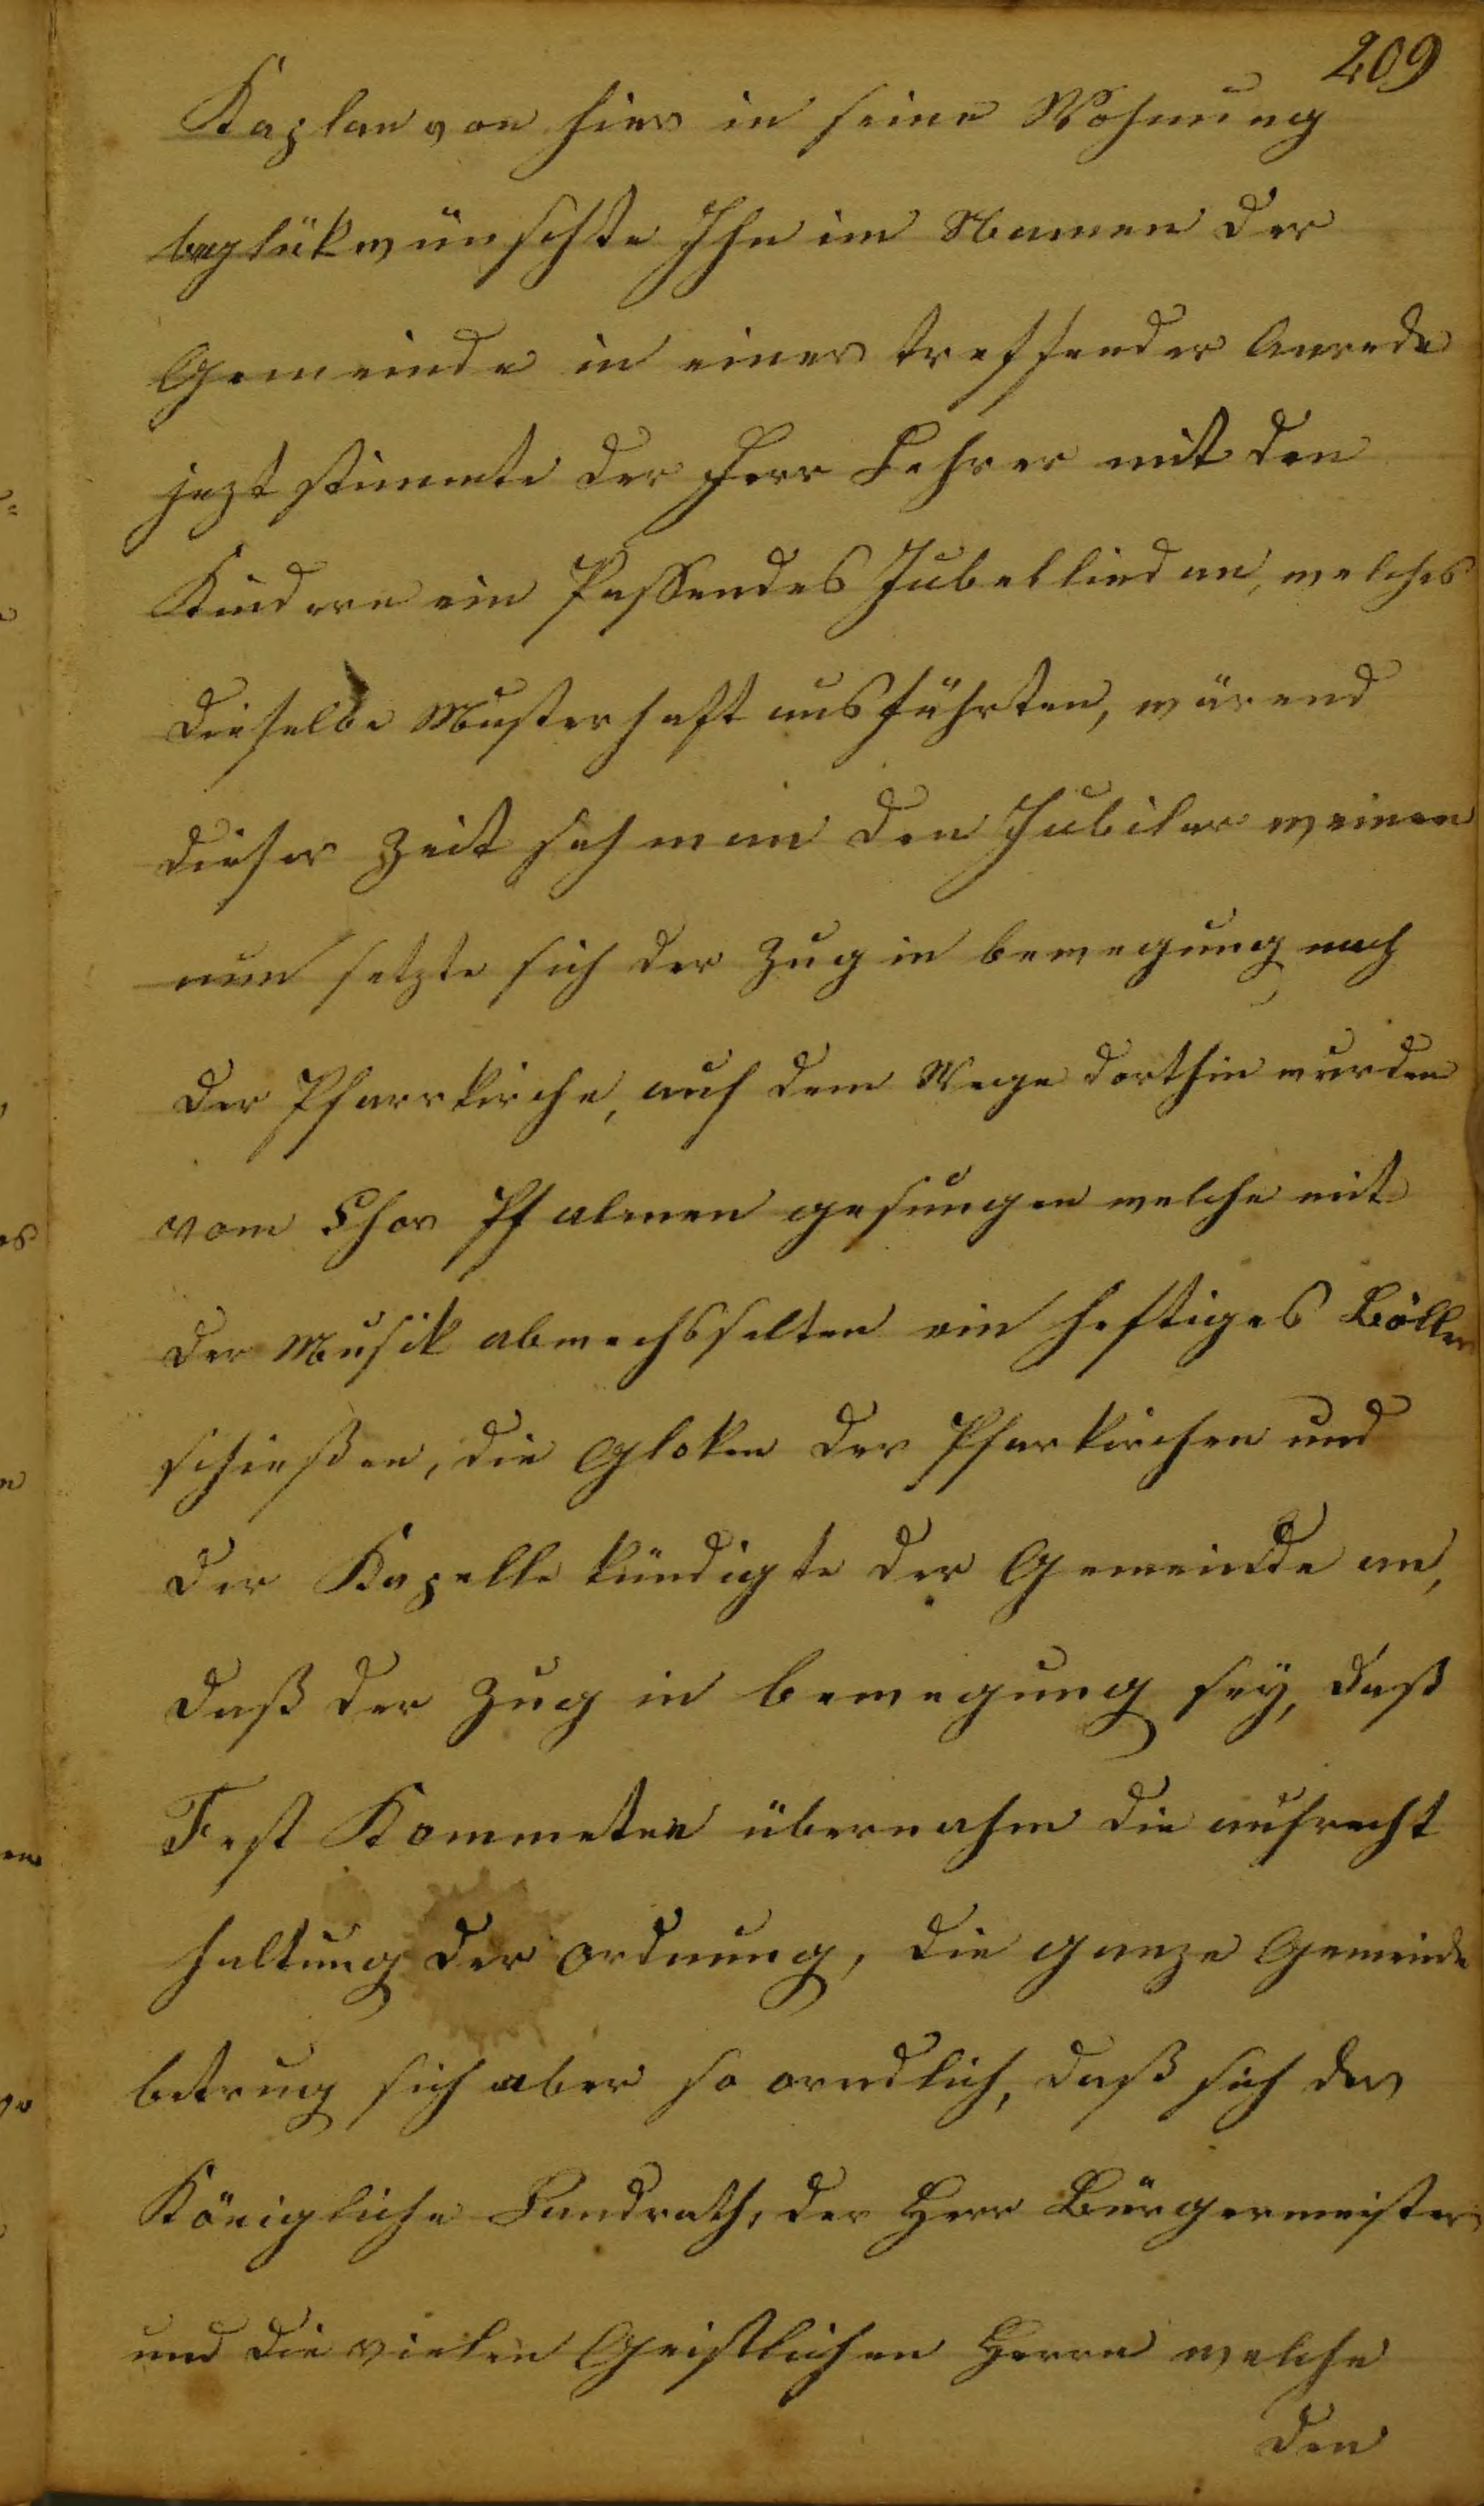 209
Kaplan von hier in seine Wohnung
beglükwünschte Ihn im Namen der
Gemeinde in einer treffender Anrede
jezt stimmte der Herr Lehrer mit den
Kindern ein Passendes Jubellied an, welches
dieselbe Musterhaft ausführten, wärend
dieser Zeit sah man den Jubilar weinen
nun setzte sich der Zug in bewegung nach
der Pfarrkirche, auf dem Wege dorthin wurden
vom Chor Psalmen gesungen welche mit
der Musik abwechsselten ein heftiges Böller
schießen, die Gloken der Pfarkirchen und
der Kapelle kündigte der Gemeinde an,
daß der Zug in bewegung sey, daß
Fest Kommeteе übernahm die aufrecht
haltung der ordnung, die ganze Gemeinde
betrug sich aber so orndlich, daß sich der
Königliche Landrath, der Herr Bürgermeister
und die vielen Geistlichen Herrn welche
den